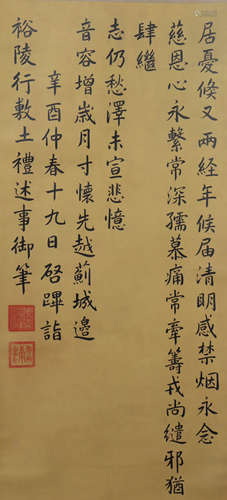 居憂候又兩経年候届清明感禁烟永念
慈恩心永繫常深孺慕痛常牽籌戎尚繾邪猶
肆繼
志仍愁澤未宣悲憶
音容增歲月寸懷先越薊城邊
辛酉仲春十九日啓蹕詣
裕陵行敷土禮述事御筆